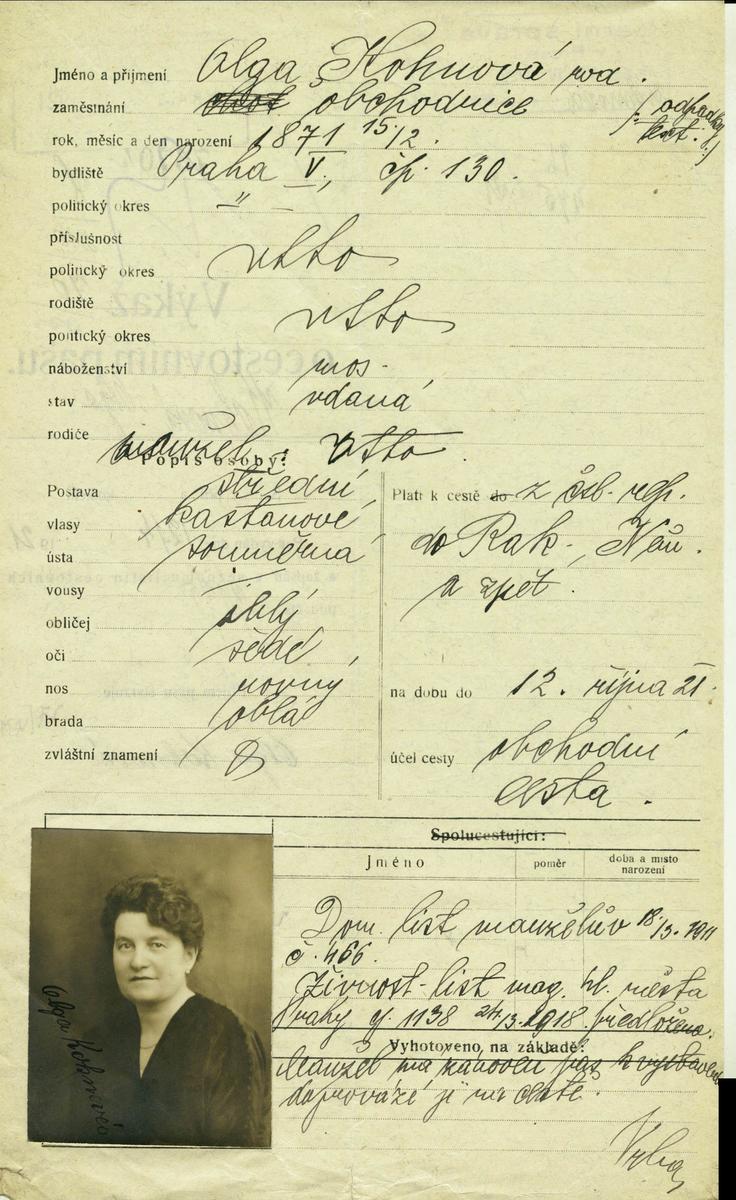 Jméno a příjmení Olga Kohnová rod.
zaměstnání obchodnice /: odpadky
rok, měsíc a den narození 1871 15/2. :/
bydliště Praha V., čp. 130.
politický okres — " —
příslušnost
politický okres
rodiště
politický okres
náboženství mos.
stav vdaná
rodiče manžel
Popis osoby:
Postava střední
vlasy kaštanové
ústa souměrná
vousy —
obličej oblý
oči šedé
nos rovný
brada oblá
zvláštní znamení
Platí k cestě do z čsb. rep.
do Rak., Něm.
a zpět.
na dobu do 12. října 21.
účel cesty obchodní
cesta.
Spolucestující:
Jméno poměr doba a místo narození
Dom. list manželův 18/3. 1911
č. 466.
Živnost. list mag. hl. města
Prahy čj. 1138 24/3. 1918 předložena.
Vyhotoveno na základě:
Manžel má pas k
doprovází ji na cestě.
Olga Kohnová